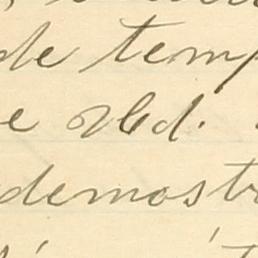 de temp
e Vd.
demostr